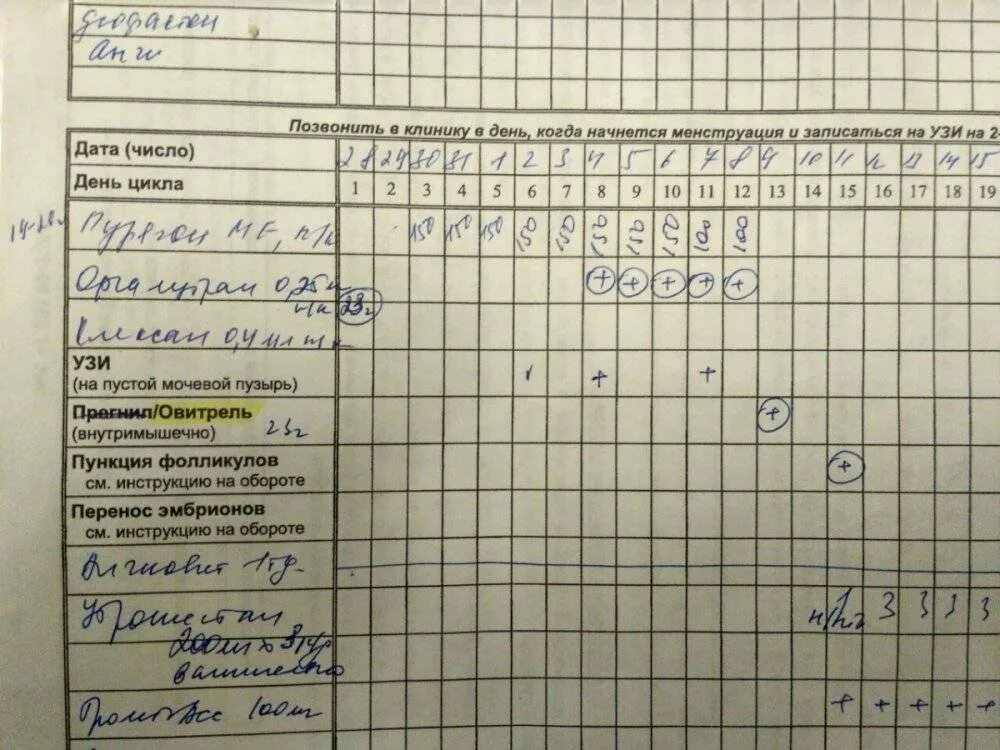 Дюфастон
Позвонить в клинику в день, когда начнется менструация и записаться на УЗИ на 2-
Дата (число) 28 29 30 31 1 2 3 4 5 6 7 8 9 10 11 12 13 14 15
День цикла 1 2 3 4 5 6 7 8 9 10 11 12 13 14 15 16 17 18 19
Пурегон МЕ, п/к 150 150 150 150 150 150 150 150 100 100
Оргалутран 0,25 + + + + +
п/к 23
Клексан 0,4 мл
УЗИ + +
(на пустой мочевой пузырь)
Прегнил/Овитрель +
(внутримышечно) 23ч
Пункция фолликулов +
см. инструкцию на обороте
Перенос эмбрионов
см. инструкцию на обороте
Ангиовит 1тб
Утрожестан 1 3 3 3 3
200мг х 3 р/д
вагинально
ТромбоАсс 100мг + + + + +